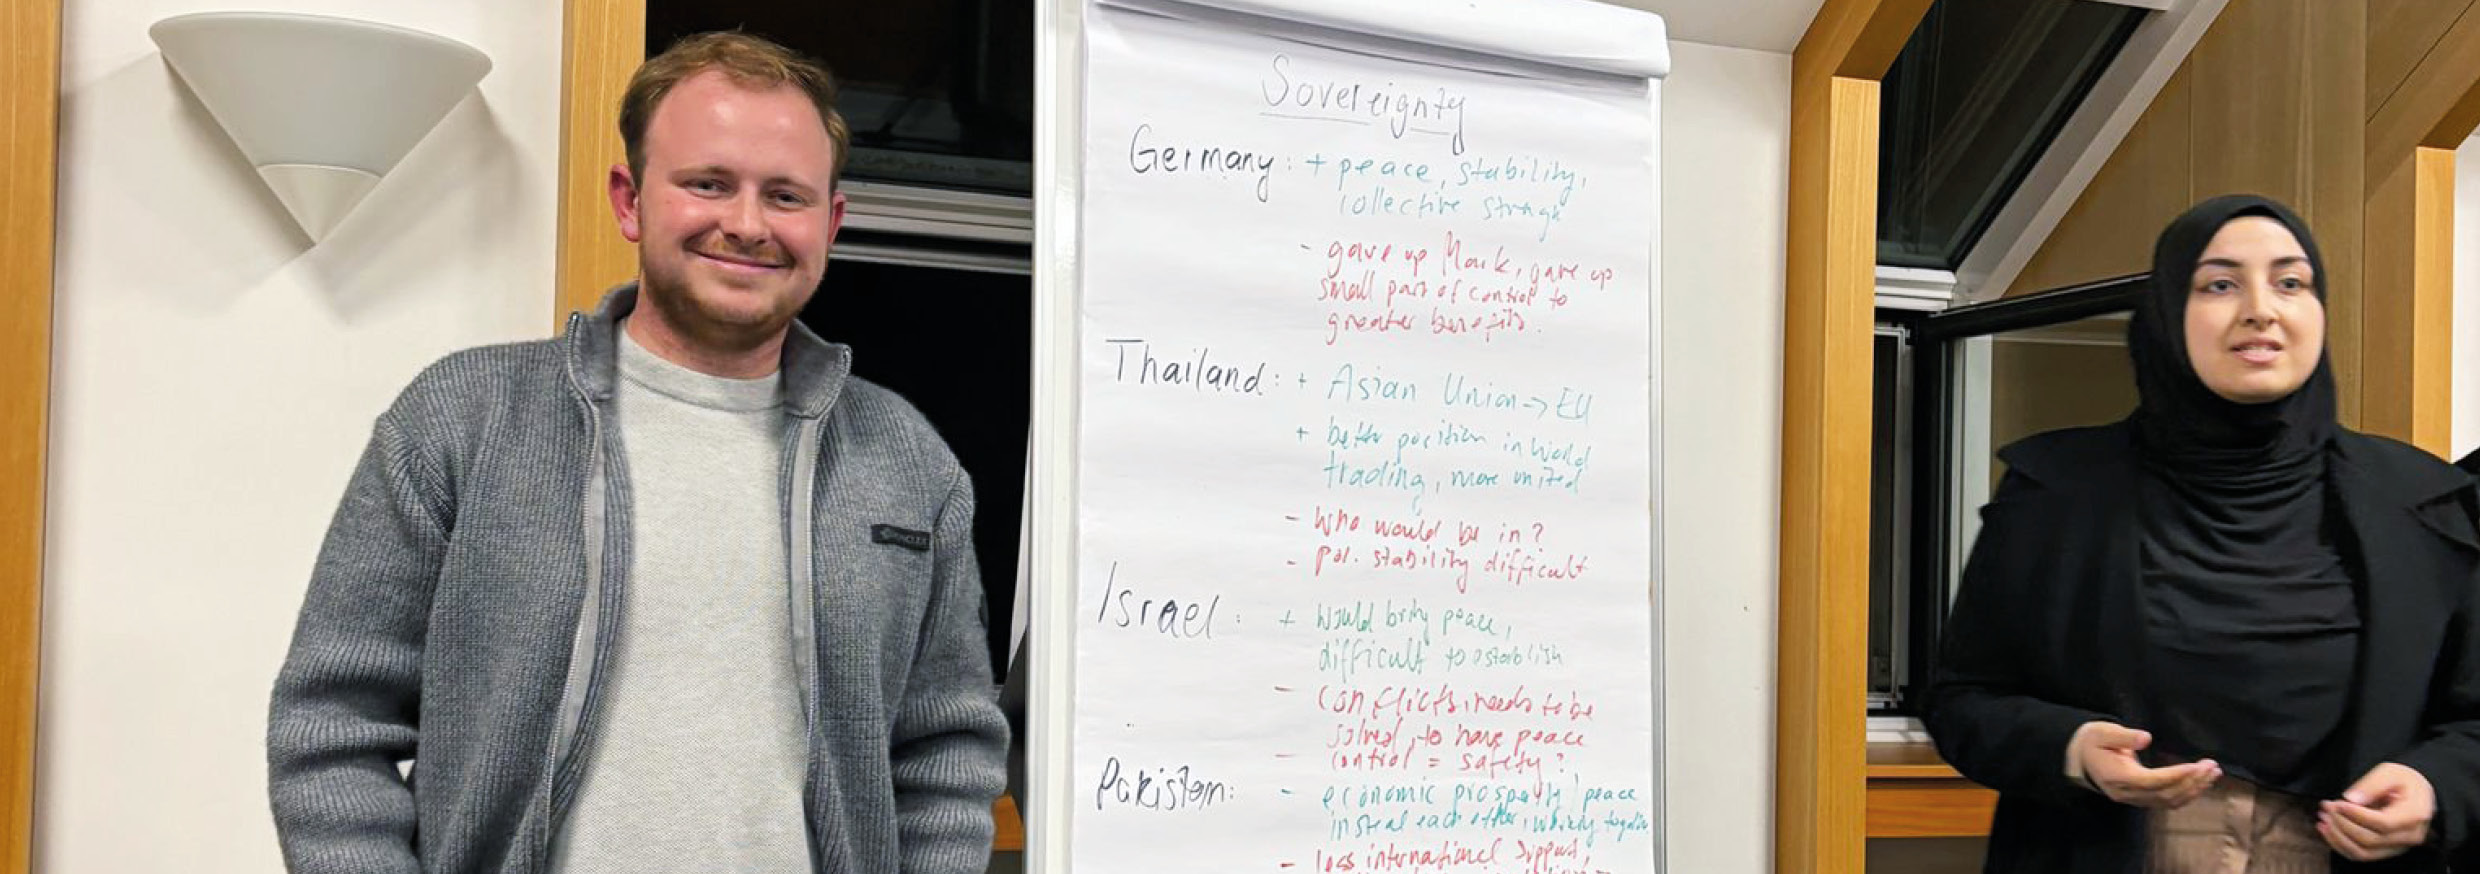 Sovereignty
Germany: + peace, stability,
collective
- gave up Mark, gave up
small part of control to
greater benefits.
Thailand: + Asian Union -> EU
+ better position in World
trading, more united
- Who would be in?
- pol. stability difficult
Israel: + Would bring peace,
difficult to establish
- conflicts needs to be
solved, to have peace
- control = safety?
Pakistan: - economic prosperity, peace
instead each other, working together
- loss international support,